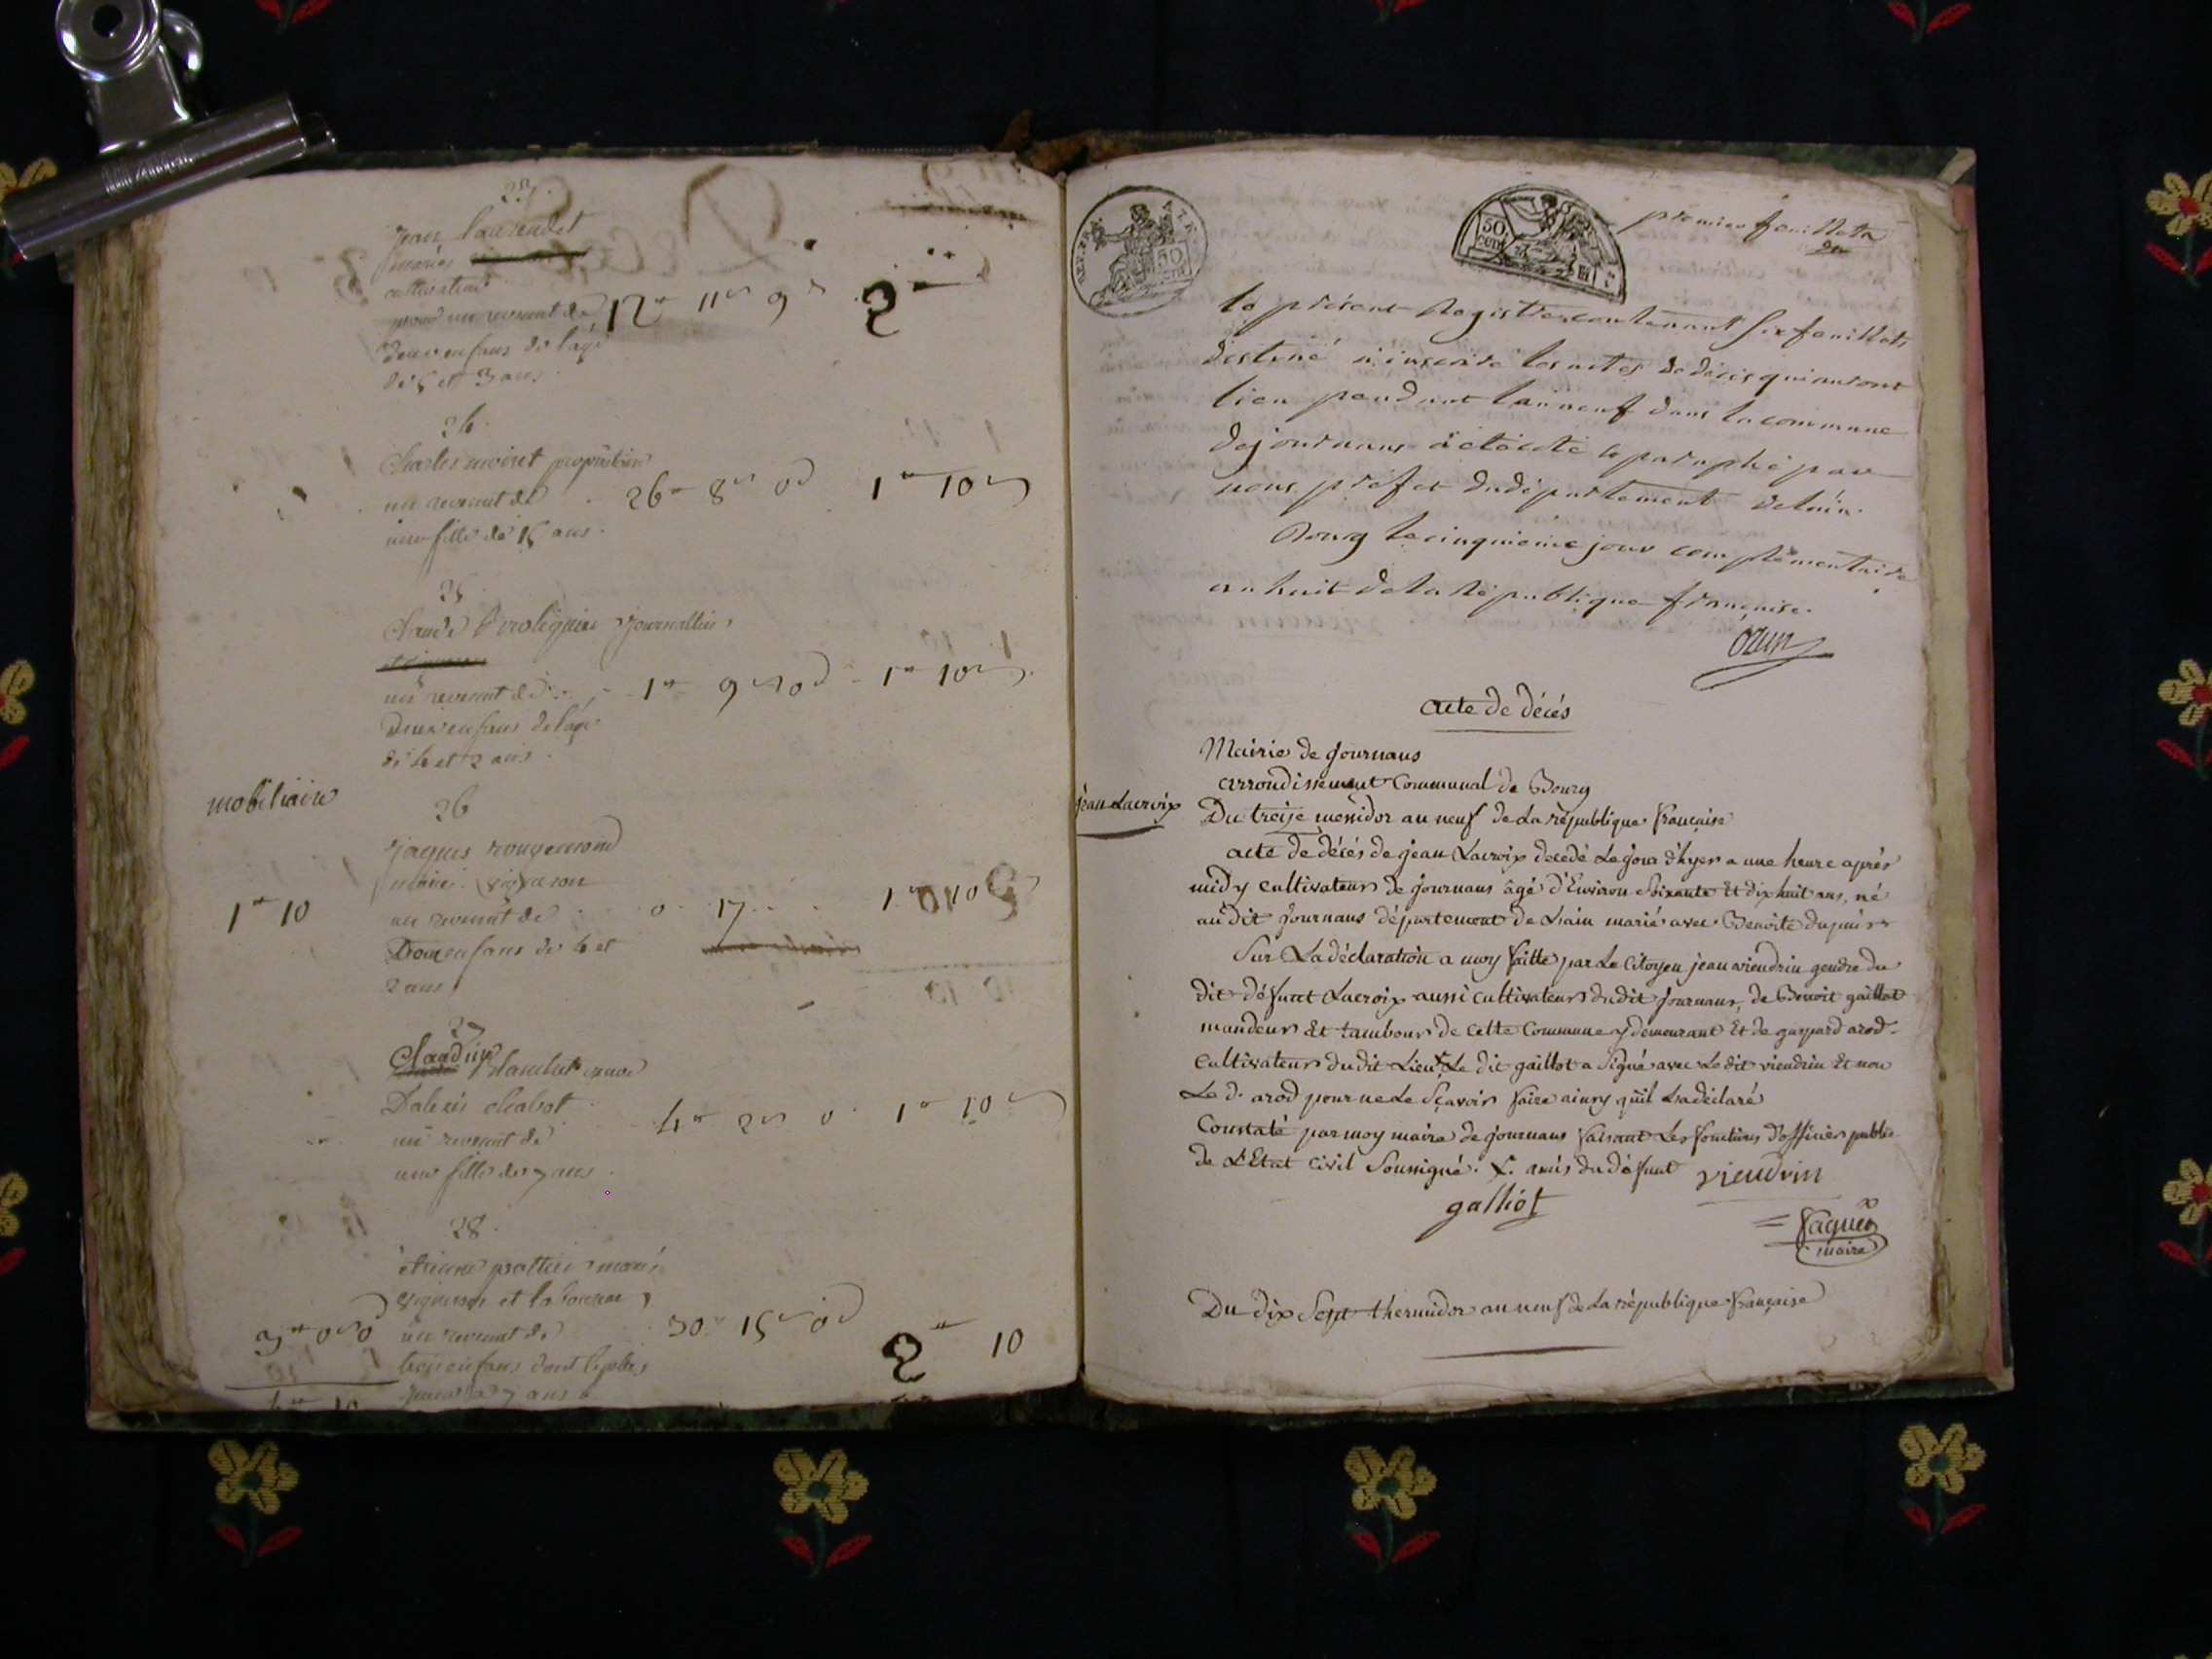 23
jean
marié
cultivateur
pour un revenut de 12 11 9 3
deux enfans de l'agé
de 5 et 3 ans
24
Charles moiret propriétaire
un revenut de 26 8 0 1 10
une fille de 15 ans
25
Claude journallier
un revenut de 1 9 0 1 10
deux enfans de lage
de 4 et 2 ans
mobiliaire
26
jaques rougemond
marié vigneron
1 10 un revenut de 0 17 1 10
enfans de 4 et
2 ans
27
Claudine veuve
D'alexis chabot
un revenut de 4 2 0 1 10
une fille de 7 ans
28
étienne marié
vigneron et laboureur
3 0 0 un revenut de 30 15 0 3 10
trois enfans dont le plus
jeune a 7 ans
1 10
REP. FRA.
50
CEN
50
CENT
premier feuillet
le présent Registre contenant six feuillets
destiné à inscrire les actes de décès qui auront
lieu pendant l'an neuf dans la commune
de journans a été coté & paraphé par
nous préfet du département de l'ain.
Bourg le cinquieme jour complémentaire
an huit de la République française.
Ozun
acte de décés
Mairie de journans
arrondissement Communal de Bourg
jean Lacroix
Du treize messidor an neuf de La république française
acte de décés de jean Lacroix decedé Le jour d'hyer a une heure aprés
midy cultivateur de journans âgé d'Environ Soixante Et dix huit ans, né
au dit journans département de L'ain marié avec Benoite dupuis
Sur La déclaration a moy faitte par Le Citoyen jean viendrin gendre du
dit défunt Lacroix aussi cultivateur du dit journans, de Benoit gaillot
mandeur Et tambour de cette Commune y demeurant Et de gaspard arod
Cultivateur du dit Lieu X Le dit gaillot a Signé avec Le dit viendrin Et non
Le d. arod pour ne Le Sçavoir faire ainsy qu'il L'a déclaré
Constaté par moy maire de journans faisant Les fonctions d'officier public
de L'Etat Civil Soussigné. X. amis du défunt viendrin
galliot
faguet
maire
Du dix Sept thermidor an neuf de La république française